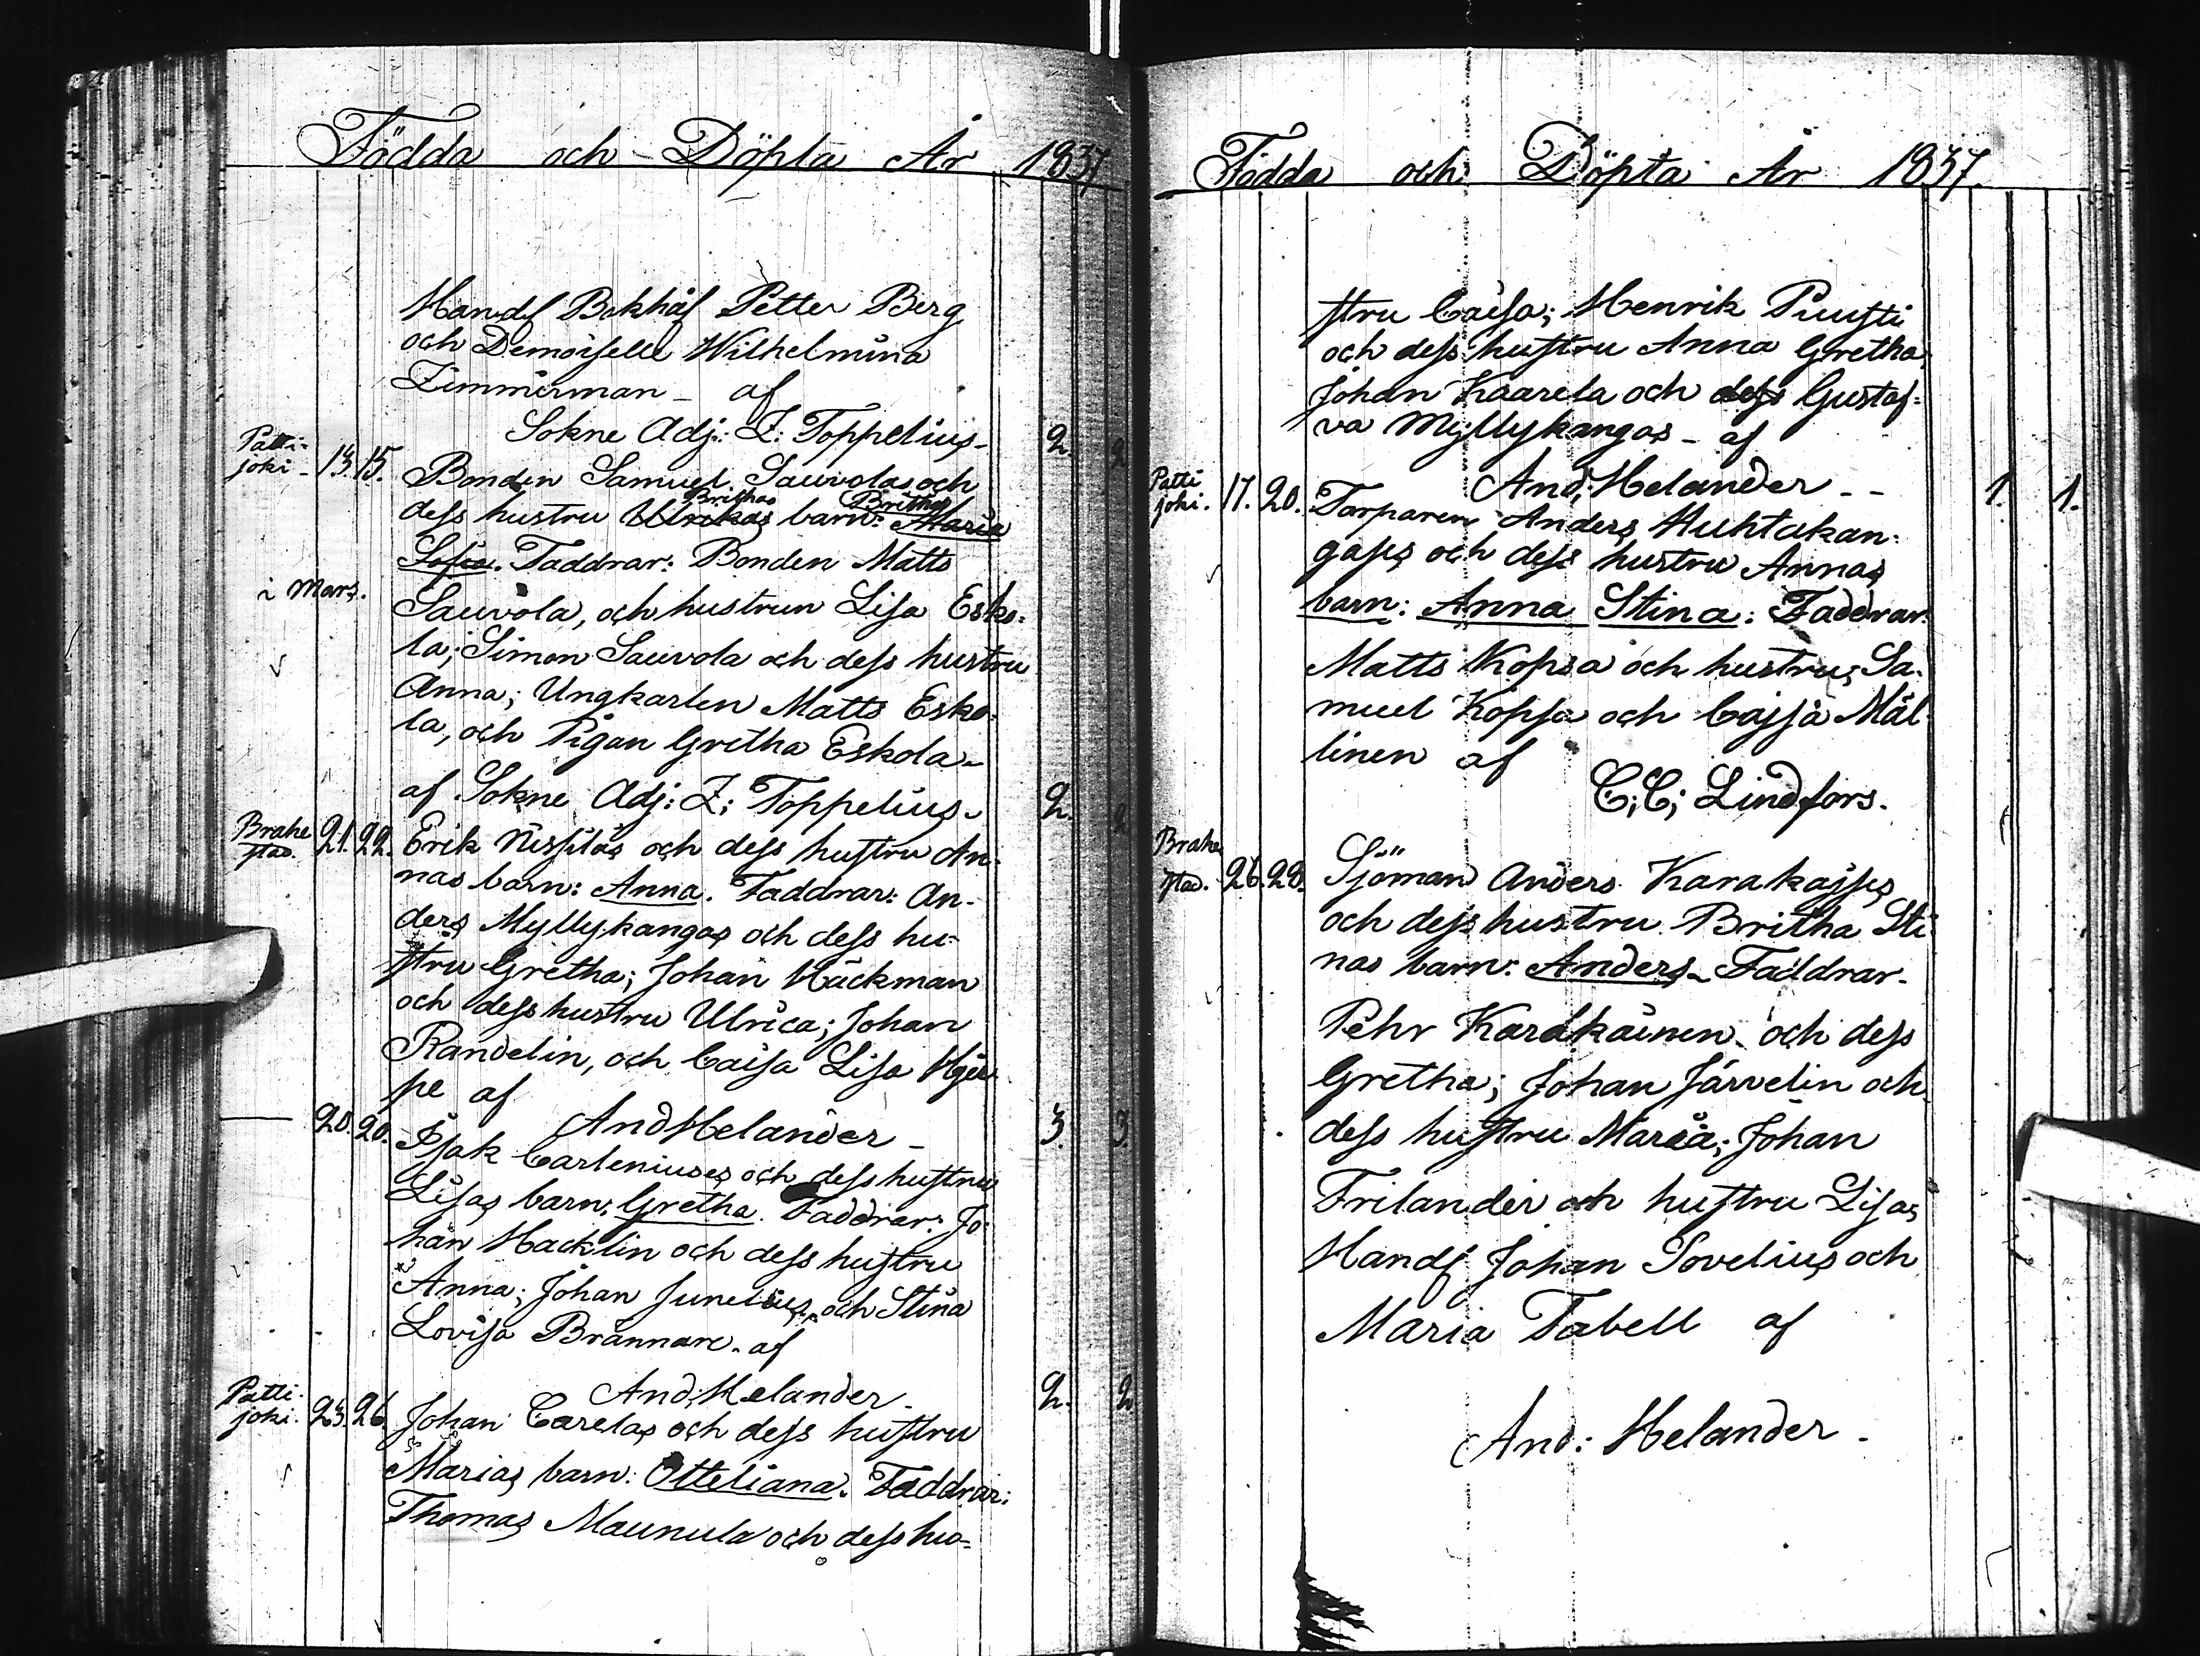 Födda och Döpta År 1837
Handsl Bokhål Petter Berg
och Demoiselle Wilhelmina
Zimmerman - af
Sokne Adj: Z: Toppelius - 2. 2
Patti-
joki - 13. 15. Bonden Samuel Sauvolas och
Brithas Britha
dess hustru Ulrikas barn: Maria
Sofia. Faddrar: Bonden Matts
i Mars.
Sauvola, och hustrun Lisa Esko-
la; Simon Sauvola och dess hustru
Anna; Ungkarlen Matts Esko-
la, och Pigan Gretha Eskola -
af Sokne Adj: Z: Toppelius - 2. 2
Brahe
stad. 21. 22. Erik Nissilas och dess hustru An-
nas barn: Anna. Faddrar: An-
ders Myllykangas och dess hu-
stru Gretha; Johan Häckman
och dess hustru Ulrica; Johan
Randelin, och Caisa Lisa Hjer-
pe af
And Helander - 3. 3.
20. 20. Isak Carleniuses och dess hustru
Lisas barn: Gretha. Faddrar: Jo-
han Hacklin och dess hustru
Anna; Johan Junelius, och Stina
Lovisa Brännare. af
And: Helander - 2. 2
Patti-
joki. 23. 26. Johan Carelas och dess hustru
Marias barn: Otteliana. Faddrar:
Thomas Maunula och dess hu-
Födda och Döpta År 1837.
stru Caisa; Henrik Puusti
och dess hustru Anna Gretha,
Johan Kaarela och dess Gustaf-
va Myllykangas - af
And; Helander - - 1. 1.
Patti
joki. 17. 20. Torparen Anders Huhtakan-
gases och dess hustru Annas
barn: Anna Stina: Faddrar:
Matts Kopsa och hustru; Sa-
muel Kopsa och Cajsa Mäl-
linen af
C; C; Lindfors.
Brahe
stad. 26. 28. Sjöman Anders Karakajses
och dess hustru Britha Sti
nas barn: Anders - Faddrar -
Pehr Karakainen och dess
Gretha; Johan Järvelin och
dess hustru Maria; Johan
Frilander och hustru Lisa;
Handl Johan Sovelius och
Maria Tabell af
And: Helander -